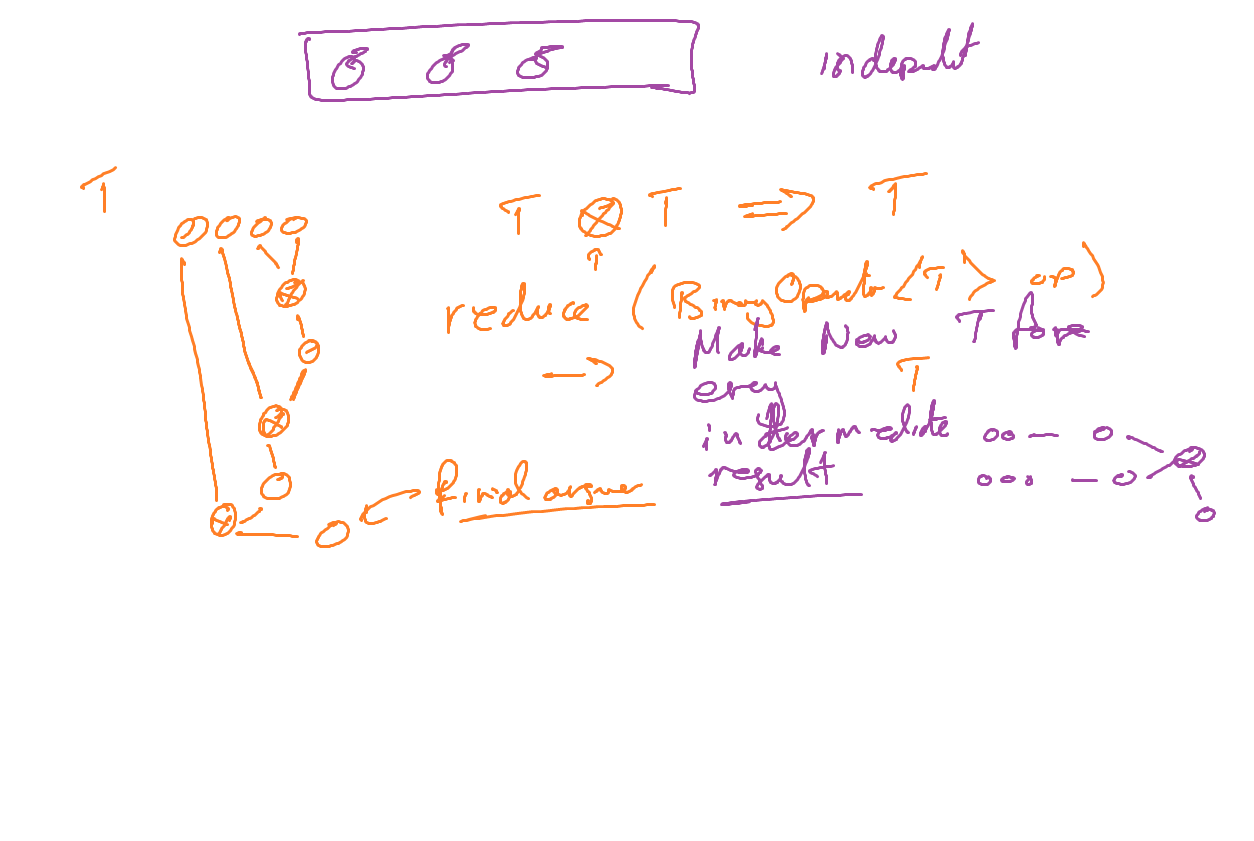 indepndt
T
T ⊗ T ⇒ T
↑
reduce ( BinaryOperator <T> op )
Make New T for
→ T
every
intermediate
result
final answer